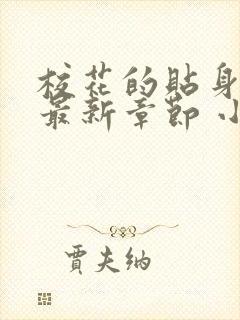 校花的貼身
最新章節 小
賈夫納